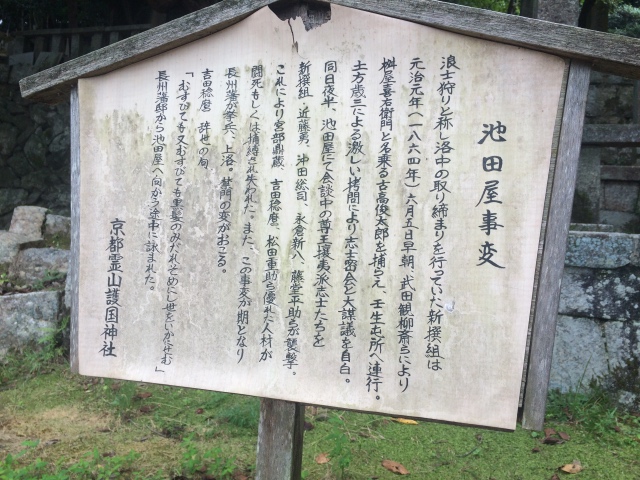 池田屋事変
浪士狩りと称し洛中の取り締まりを行っていた新撰組は
元治元年（一八六四年）六月五日早朝、武田観柳斎らにより
桝屋喜右衛門と名乗る古高俊太郎を捕らえ、壬生屯所へ連行。
土方歳三による激しい拷問により志士密会と大謀議を自白。
同日夜半、池田屋にて会談中の尊王攘夷派志士たちを
新撰組・近藤勇、沖田総司、永倉新八、藤堂平助らが襲撃。
これにより宮部鼎蔵、吉田稔麿、松田重助ら優れた人材が
闘死もしくは捕縛され失われた。また、この事変が期となり
長州藩が挙兵、上洛。禁門の変がおこる。
吉田稔麿 辞世の句
「むすびても又むすびても黒髪のみだれそめにし世をいかにせむ」
長州藩邸から池田屋へ向かう途中に詠まれた。
京都霊山護国神社